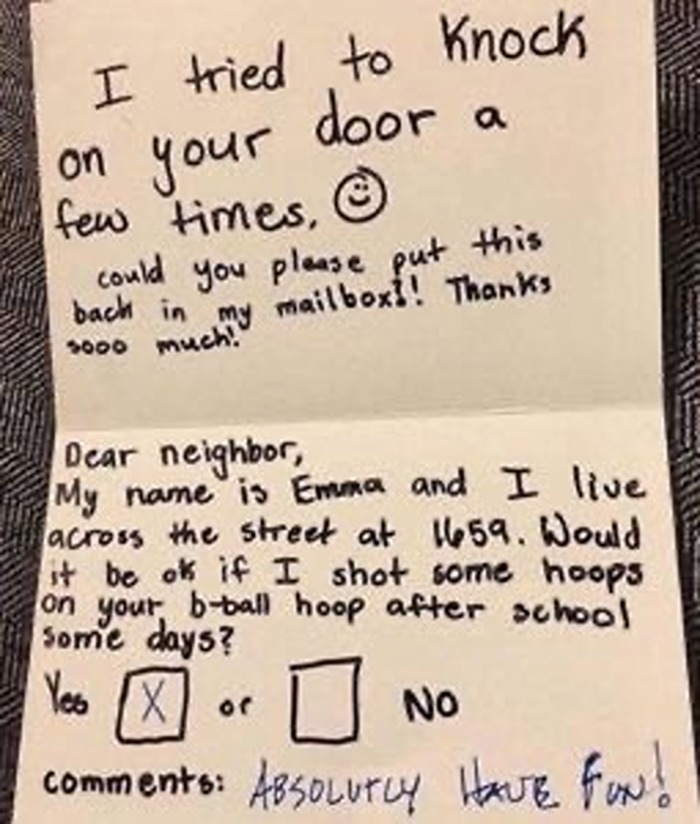 I tried to Knock
on your door a
few times.
could you please put this
back in my mailbox!! Thanks
sooo much!
Dear neighbor,
My name is Emma and I live
across the street at 1659. Would
it be ok if I shot some hoops
on your b-ball hoop after school
some days?
Yes X or NO
comments: ABSOLUTLY HAVE FUN!